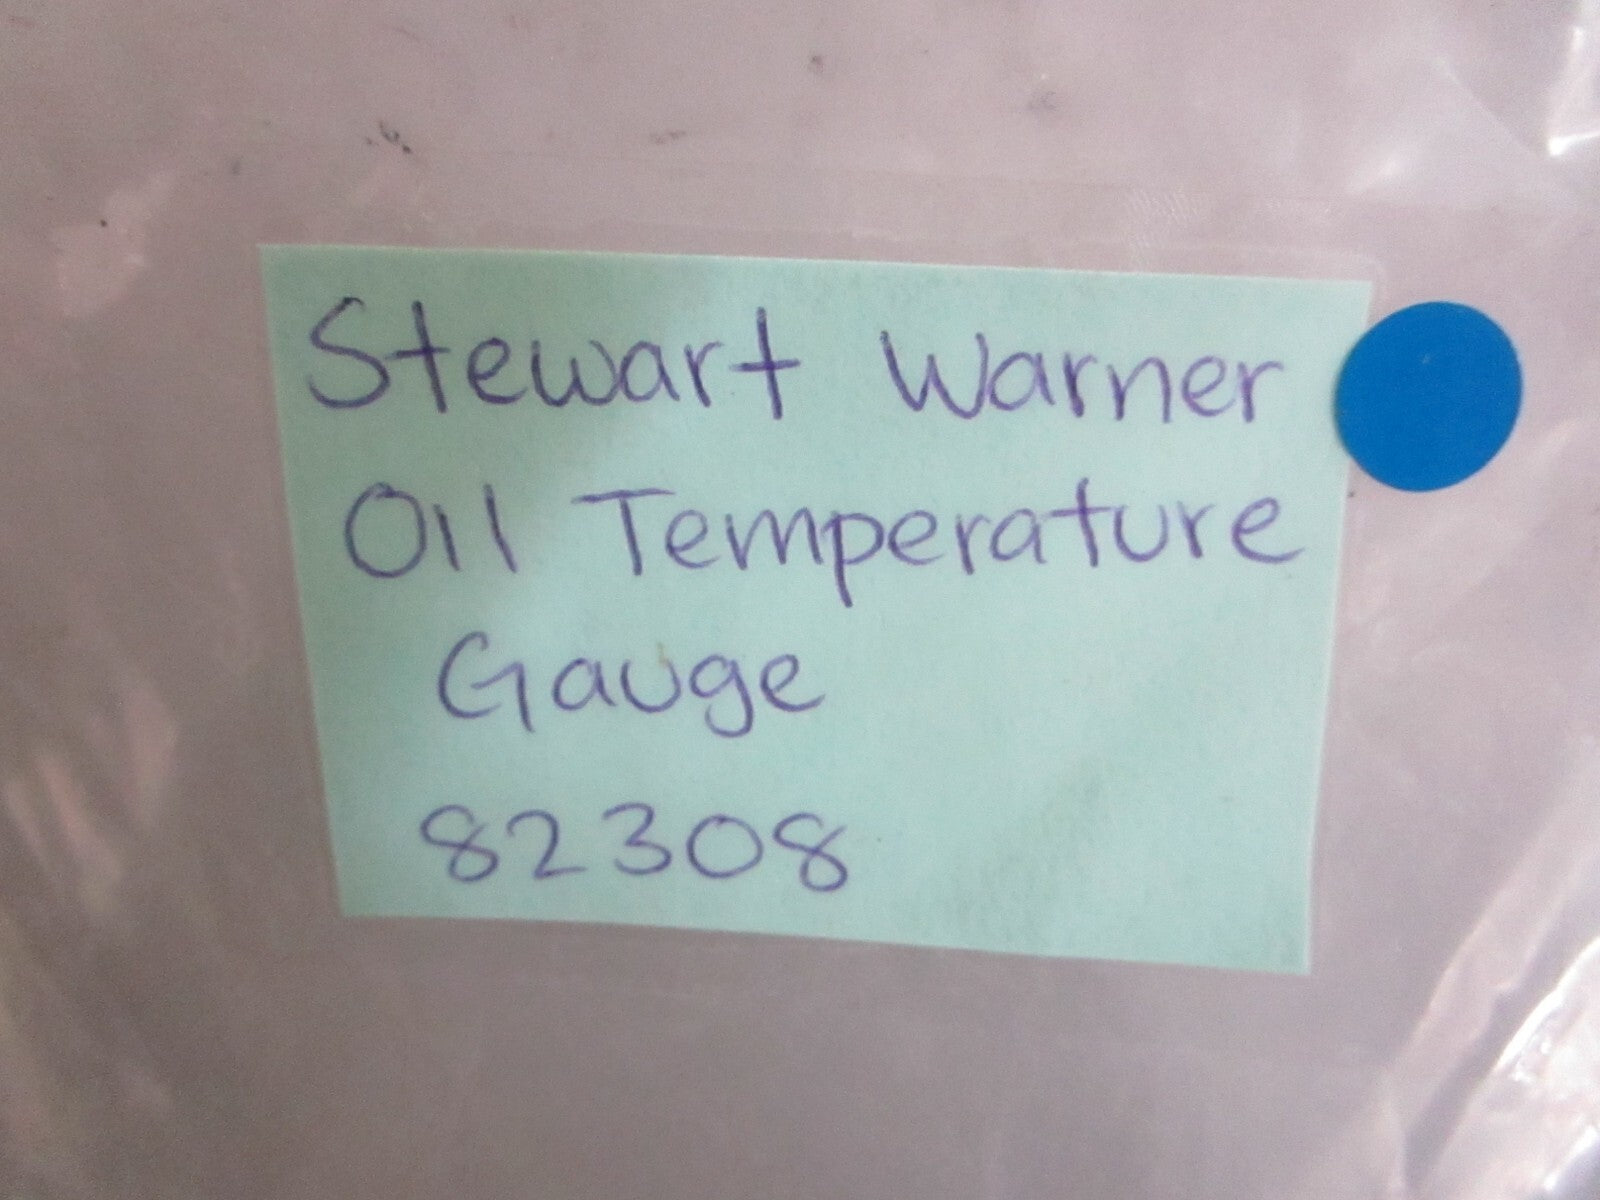 Stewart Warner
Oil Temperature
Gauge
82308